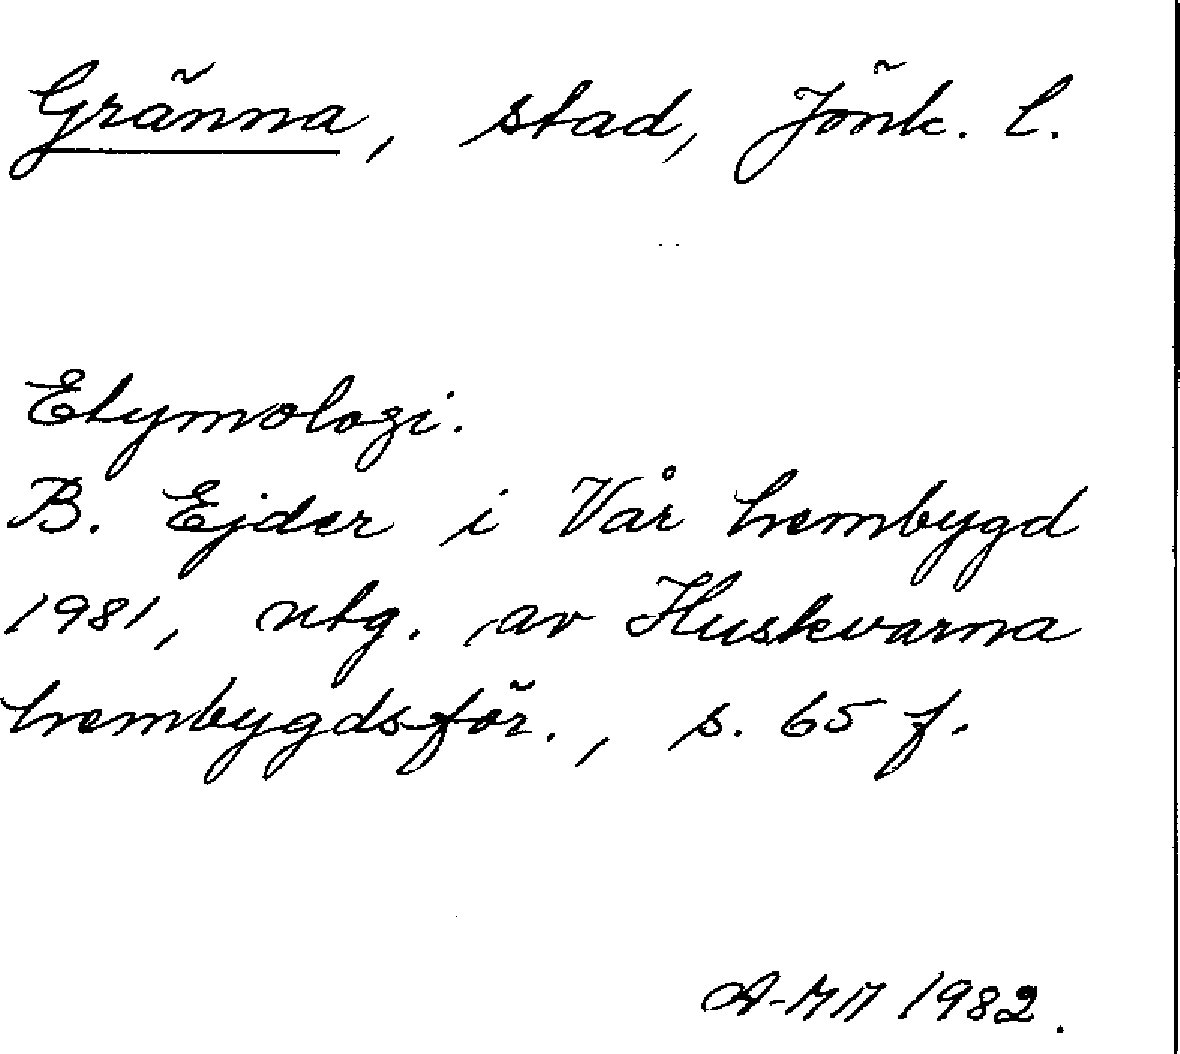 Gränna, stad, Jönk. l.
Etymologi.
B. Ejder i Vår hembygd
1981, utg. av Huskvarna
hembygdsför., s. 65 f.
A-MM 1982.